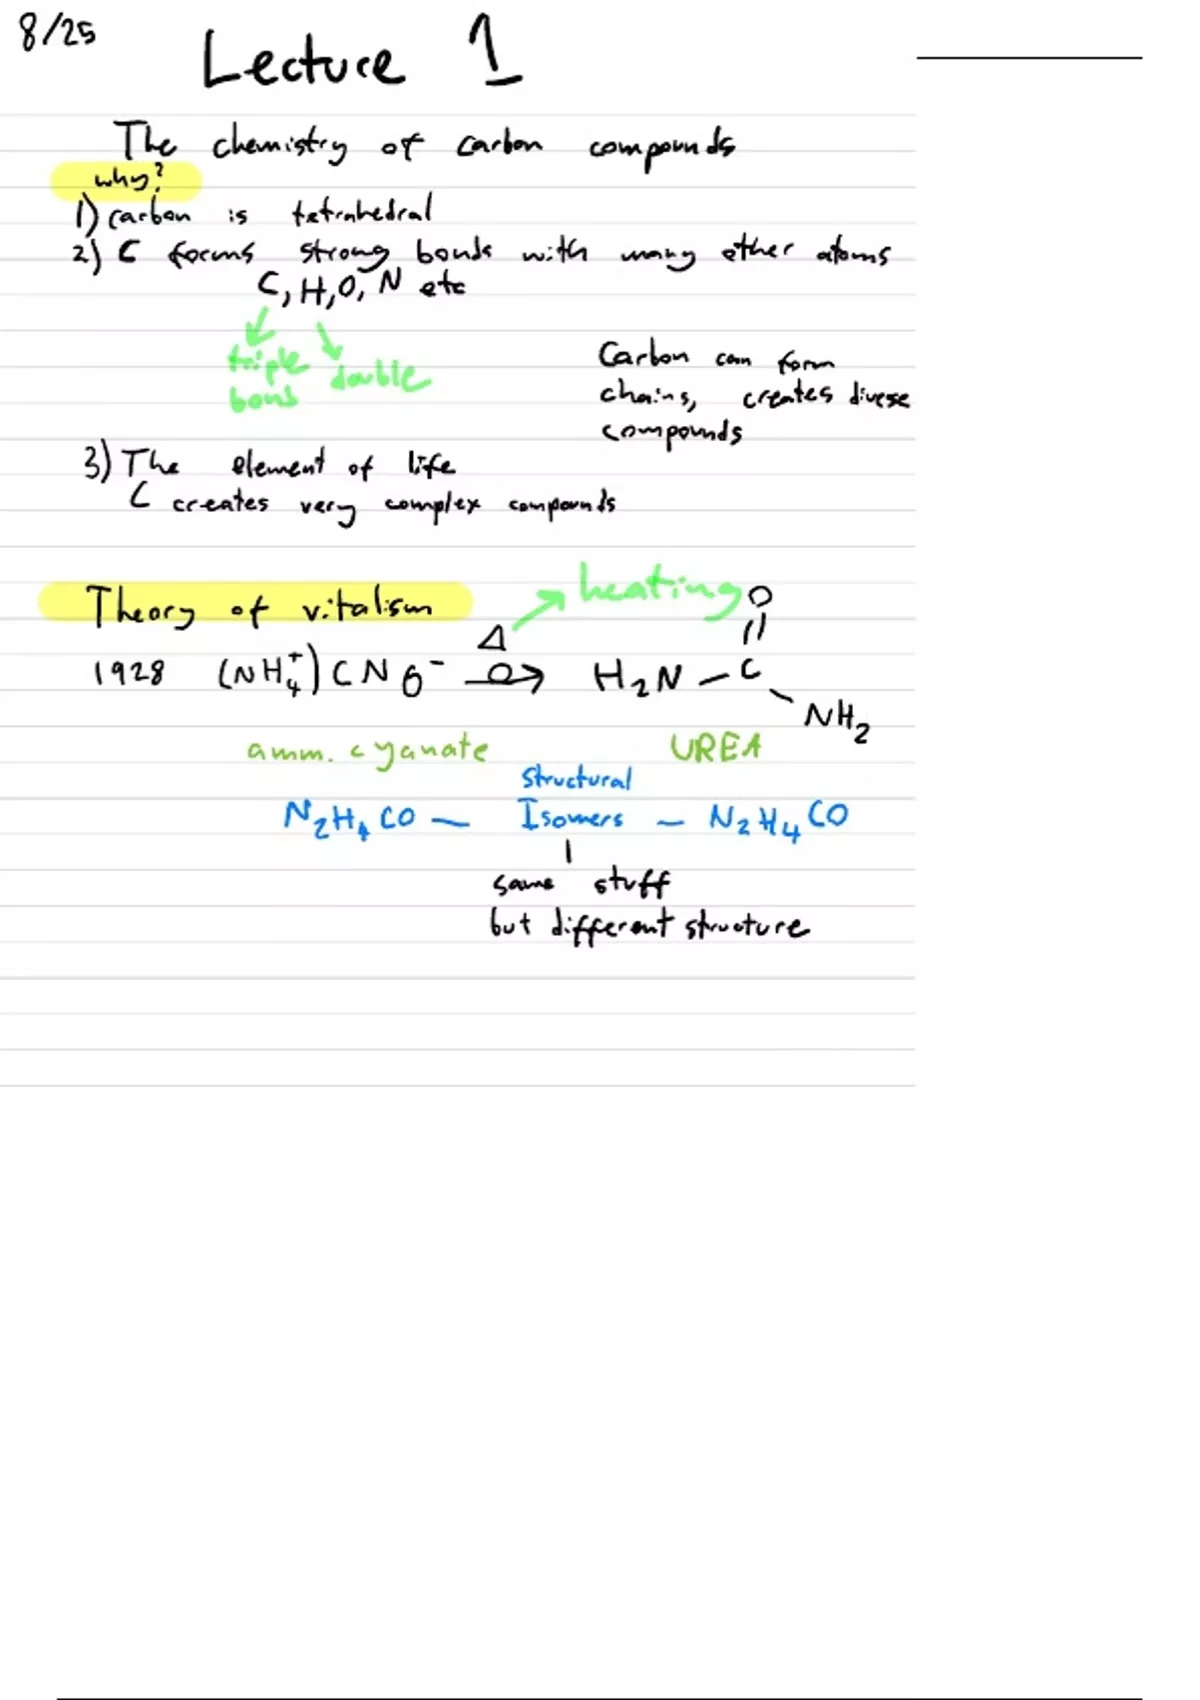 8/25
Lecture 1
The chemistry of carbon compounds
why?
1) carbon is tetrahedral
2) C forms strong bonds with many other atoms
C, H, O, N etc
triple double
bons
Carbon can form
chains, creates divese
compounds
3) The element of life
C creates very complex compounds
Theory of vitalism
heating
Δ
O
1928 (NH₄⁺) CNO⁻ → H₂N – C
NH₂
amm. cyanate UREA
structural
N₂H₄CO – Isomers – N₂H₄CO
same stuff
but different structure